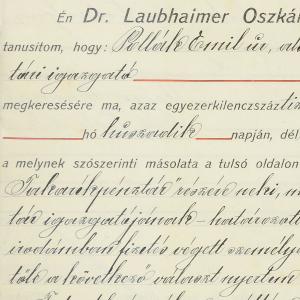 Én Dr. Laubhaimer Oszká
tanusítom, hogy: Pollák Emil úr, al
tári igazgató
megkeresésére ma, azaz egyezerkilenczszáz tiz
hó huszadik napján, dél
a melynek szószerinti másolata a tulsó oldalon
Takarékpénztár" részére neki, m
tár igazgatójának - határozott
irodámban fizetés végett személye
tőle a következő választ nyertem